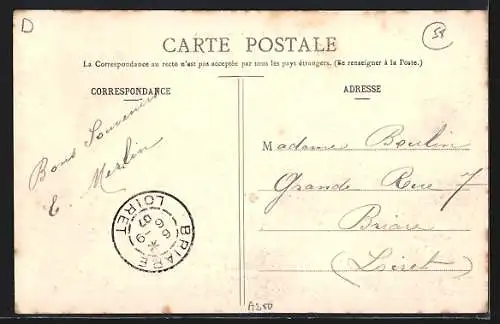 D
CARTE POSTALE
La Correspondance au recto n'est pas acceptée par tous les pays étrangers. (Se renseigner à la Poste.)
CORRESPONDANCE
ADRESSE
Bons Souvenirs
E. Merlin
Madame Boulin
Grande Rue 7
Briare
(Loiret)
BRIARE
6-9
07
LOIRET
A550